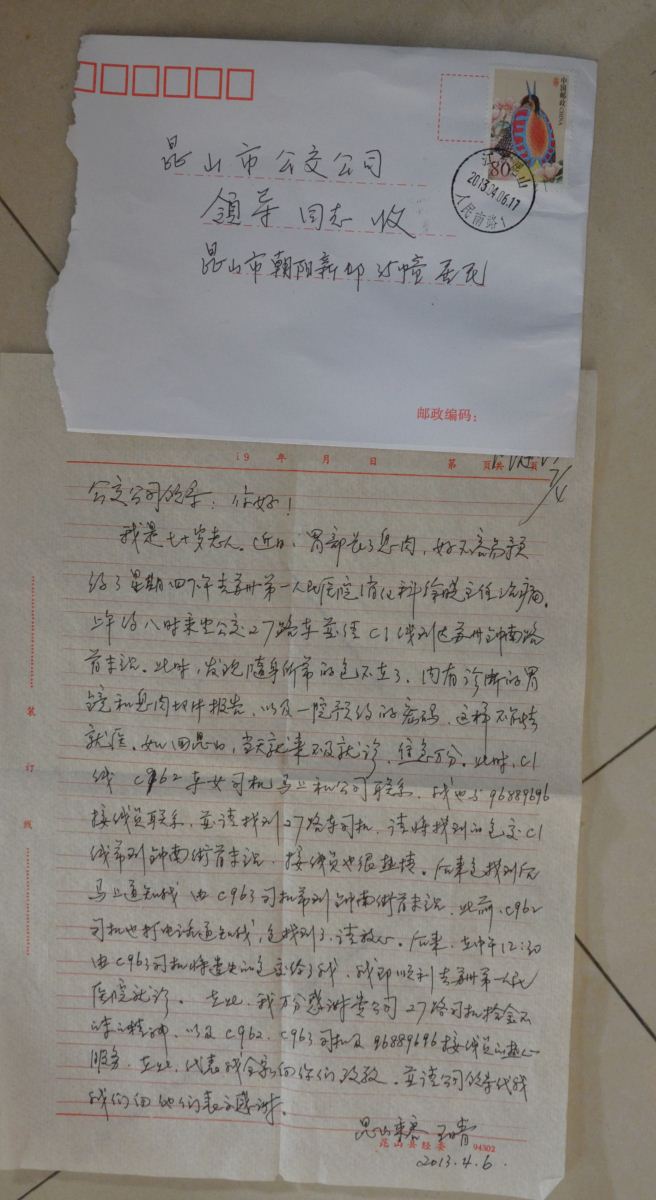 中国邮政 CHINA
80
江苏昆山
2013.04.06.17
人民南路1
昆山市公交公司
领导 同志 收
昆山市朝阳新邨 居民
邮政编码：
19 年 月 日 第 页共 页
公交公司领导：你好！
我是七十岁老人。近日，胃部长了息肉，好不容易预
约了星期四下午去苏州第一人民医院消化科徐 主任治病。
上午约八时乘坐公交27路车并经C1线到达苏州钟南路
首末站。此时，发现随身所带的包不在了，内有诊断的胃
镜和息肉切片报告，以及一院预约的密码，这样不能去
就医。如回昆山，当天就来不及就诊，焦急万分。此时，C1
线 C962车女司机马上和公司联系，我也与96889696
接线员联系，并请找到27路车司机，请将找到的包交C1
线带到钟南街首末站，接线员也很热情。后来包找到后
马上通知我 由C963司机带到钟南街首末站，此前，C962
司机也打电话通知我，包找到了，请放心。后来，在中午12:30
由C963司机将遗失的包交给了我，我即顺利去苏州第一人民
医院就诊。在此，我万分感谢贵公司27路司机拾金不
昧的精神，以及C962、C963司机及96889696接线员的热心
服务，在此，代表我全家向你们致敬，并请公司领导代我
我们向他们表示感谢。
昆山乘客 王
昆山县经委 94302
2013.4.6.
装
订
线